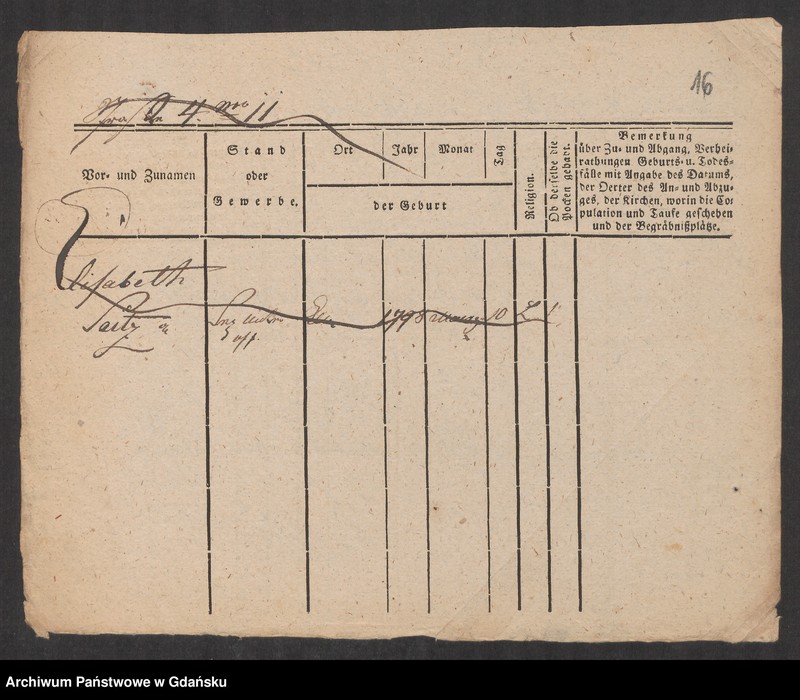 16
4. 11
Vor- und Zunamen
Stand
oder
Gewerbe.
Ort
Jahr
Monat
Tag
der Geburt
Religion.
Ob derselbe die
Pocken gehabt.
Bemerkung
über Zu- und Abgang, Verhei-
rathungen Geburts- u. Todes-
fälle mit Angabe des Datums,
der Oerter des An- und Abzu-
ges, der Kirchen, worin die Co-
pulation und Taufe geschehen
und der Begräbnißplätze.
Elisabeth
10
Archiwum Państwowe w Gdańsku